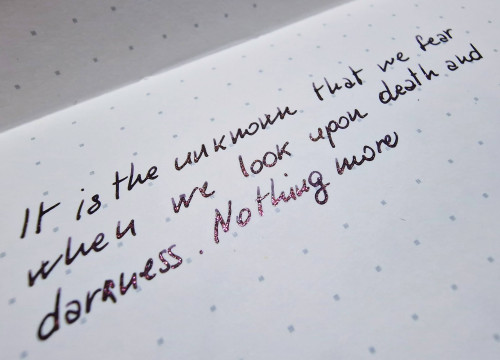 It is the unknown that we fear
when we look upon death and
darkness. Nothing more